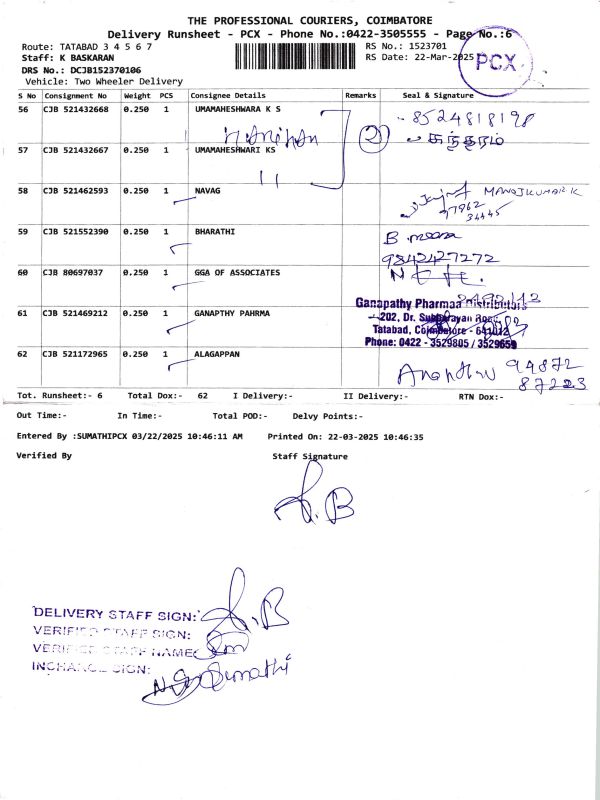 THE PROFESSIONAL COURIERS, COIMBATORE
Delivery Runsheet - PCX - Phone No.:0422-3505555 - Page No.:6
Route: TATABAD 3 4 5 6 7
RS No.: 1523701
Staff: K BASKARAN
RS Date: 22-Mar-2025
PCX
DRS No.: DCJB152370106
Vehicle: Two Wheeler Delivery
S No Consignment No Weight PCS Consignee Details Remarks Seal & Signature
56 CJB 521432668 0.250 1 UMAMAHESHWARA K S 8524818198
2 சுந்தரம்
57 CJB 521432667 0.250 1 UMAMAHESHWARI KS
58 CJB 521462593 0.250 1 NAVAG MANOJKUMAR K
77962
34445
59 CJB 521552390 0.250 1 BHARATHI B. meena
9842427272
60 CJB 80697037 0.250 1 GGA OF ASSOCIATES
61 CJB 521469212 0.250 1 GANAPTHY PAHRMA Ganapathy Pharmaa Distributors
202, Dr. Subbarayan Road,
Tatabad, Coimbatore - 641012
Phone: 0422 - 3529805 / 3529659
62 CJB 521172965 0.250 1 ALAGAPPAN 94872
87223
Tot. Runsheet:- 6 Total Dox:- 62 I Delivery:- II Delivery:- RTN Dox:-
Out Time:- In Time:- Total POD:- Delvy Points:-
Entered By :SUMATHIPCX 03/22/2025 10:46:11 AM Printed On: 22-03-2025 10:46:35
Verified By Staff Signature
DELIVERY STAFF SIGN:
VERIFIED STAFF SIGN:
VERIFIED STAFF NAME:
INCHARGE SIGN: Sumathi